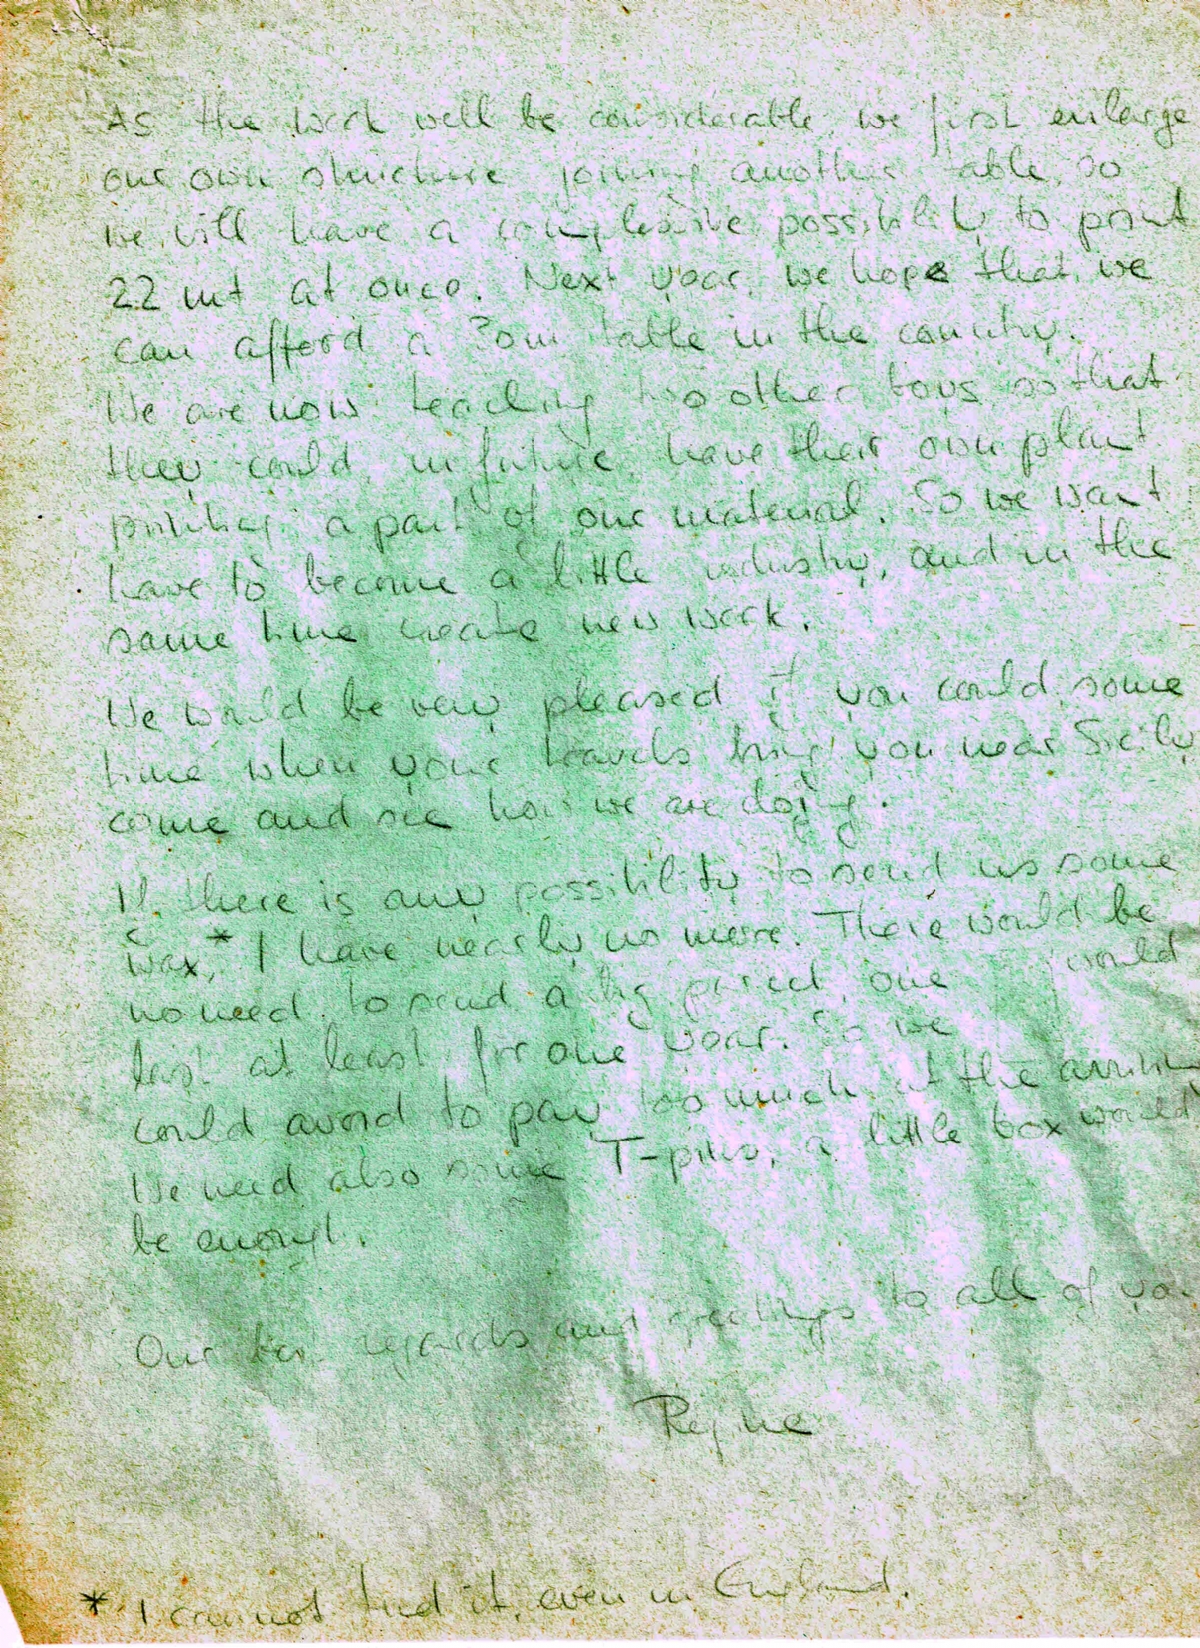 As the work will be considerable, we first enlarge
our own structure joining another table, so
we will have a complessive possibility to print
22 mt at once. Next year, we hope that we
can afford a 30m table in the country.
We are now teaching two other boys so that
they could, in future, have their own plant
printing a part of our material. So we want
have to become a little industry, and in the
same time create new work.
We would be very pleased if you could some
time when your travels bring you near Sicily
come and see how we are doing.
If there is any possibility to send us some
wax,* I have nearly no more. There would be
no need to send a big parcel, one would
last at least for one year. So we
could avoid to pay too much at the
We need also some T-pins, a little box would
be enough.
Our best regards and greetings to all of you
Regine
* I cannot find it, even in England.